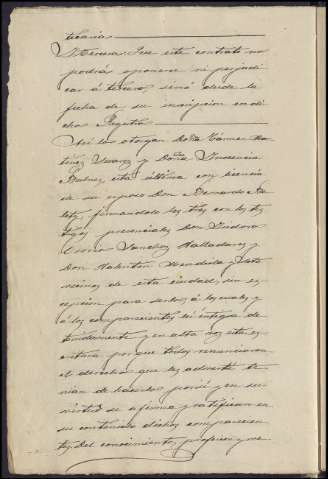 tecaria
Novena Que este contrato no
podrá oponerse ni perjudi
car á tercero, sino desde la
fecha de su inscripcion en di
cho Registro
Así lo otorgan Doña Carmen
Suarez y Doña Inocencia
esta última con licencia
de su esposo Don Bernardo
firmandolo los tres con los tes
tigos presenciales Don Isidoro
Sanchez Valladares y
Don Valentin Mendiola y Soto
vecinos de esta ciudad, sin es
cepcion para serlo; á los cuales y
á los comparecientes leí íntegra de
tenidamente y en alta voz esta es
critura porque todos renunciaron
el derecho que les advertí te
nian de hacerlo por sí; y en su
se afirman y ratifican en
su contenido dichos comparecien
tes. Del conocimiento, profesion y ve